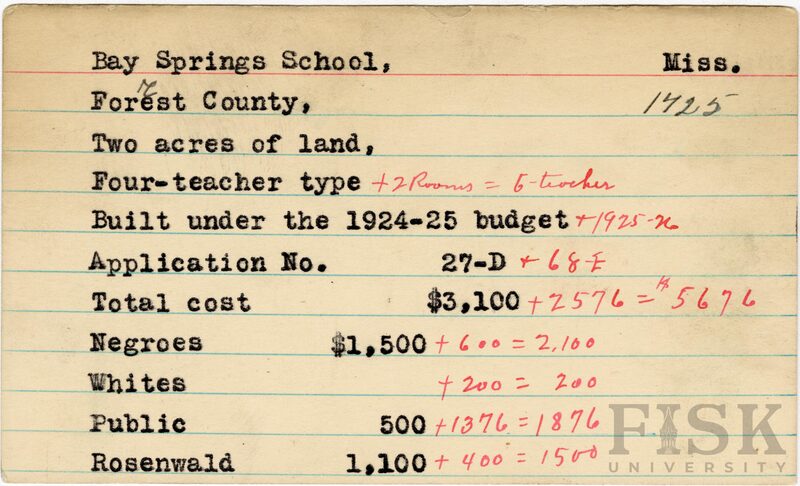 Bay Springs School, Miss.
Forrest County, 1725
Two acres of land,
Four-teacher type + 2 Rooms = 6-teacher
Built under the 1924-25 budget + 1925-26
Application No. 27-D + 68-E
Total cost $3,100 + 2576 = 5676
Negroes $1,500 + 600 = 2,100
Whites + 200 = 200
Public 500 + 1376 = 1876
Rosenwald 1,100 + 400 = 1500
FISK
UNIVERSITY